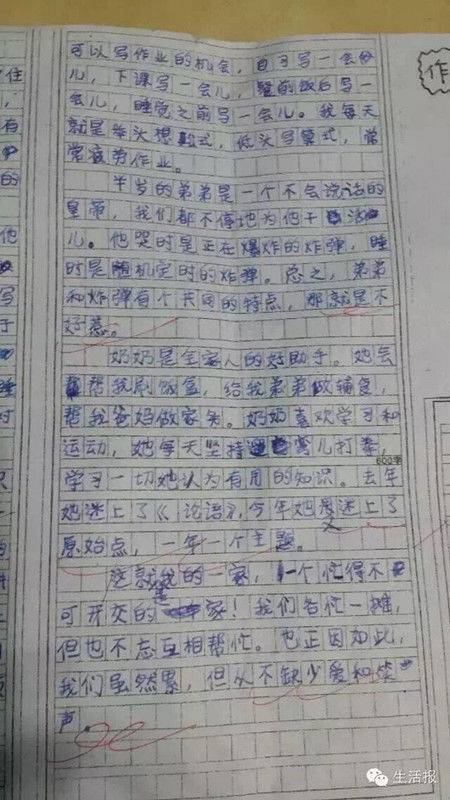 可以写作业的机会，自习写一会
儿，下课写一会儿，饭后写一
会儿，睡觉之前写一会儿。我每天
就是抬头想算式，低头写算式，常
常疲劳作业。
半岁的弟弟是一个不会说话的
皇帝，我们都不停地为他干活
儿。他哭时是正在爆炸的炸弹，睡
时是随机定时的炸弹。总之，弟弟
和炸弹有个共同的特点，那就是不
好惹。
奶奶是全家人的好助手。她会
帮我刷饭盒，给我弟弟做辅食，
帮我爸妈做家务。奶奶喜欢学习和
运动，她每天坚持弯儿打拳，
600字
学习一切她认为有用的知识。去年
她迷上了《论语》，今年她又迷上了
原始点，一年一个主题。
这就是我的一家，一个忙得不
可开交的家！我们各忙一摊，
但也不忘互相帮忙。也正因如此，
我们虽然累，但从不缺少爱和笑
声。
作
住
有
的
他
写
于
睡
对
生活报